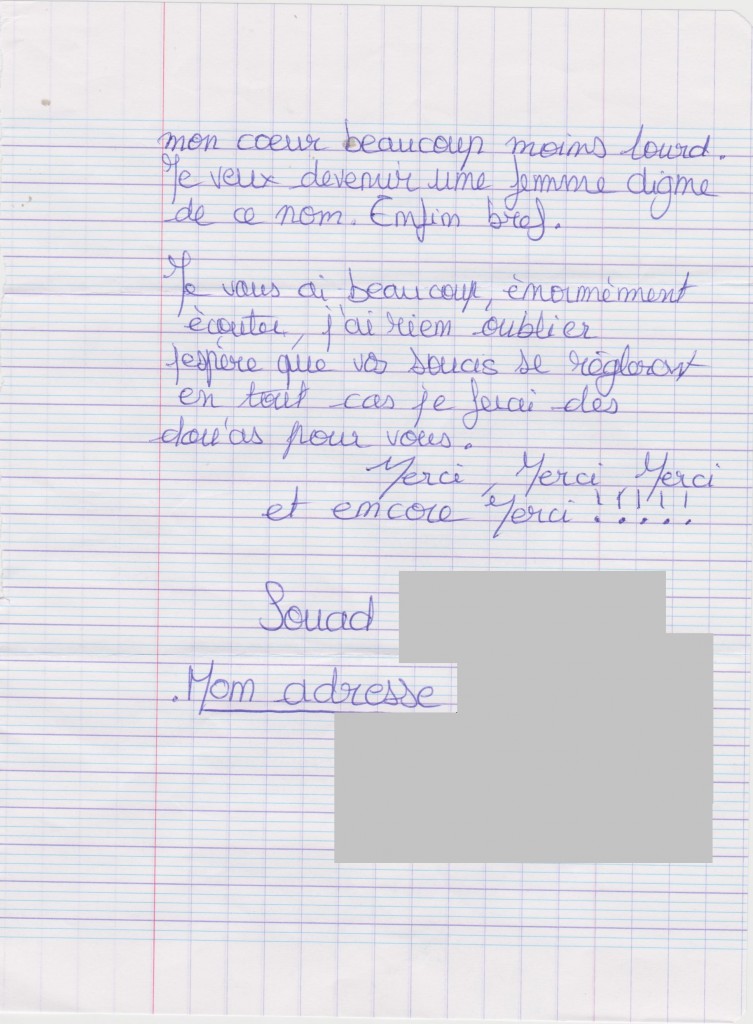 mon coeur beaucoup moins lourd.
Je veux devenir une femme digne
de ce nom. Enfin bref.
Je vous ai beaucoup, énormément
écouter, j'ai rien oublier
j'espère que vos soucis se règleront
en tout cas je ferai des
dou'as pour vous.
Merci, Merci, Merci
et encore Merci !!!!!
Souad
. Mon adresse